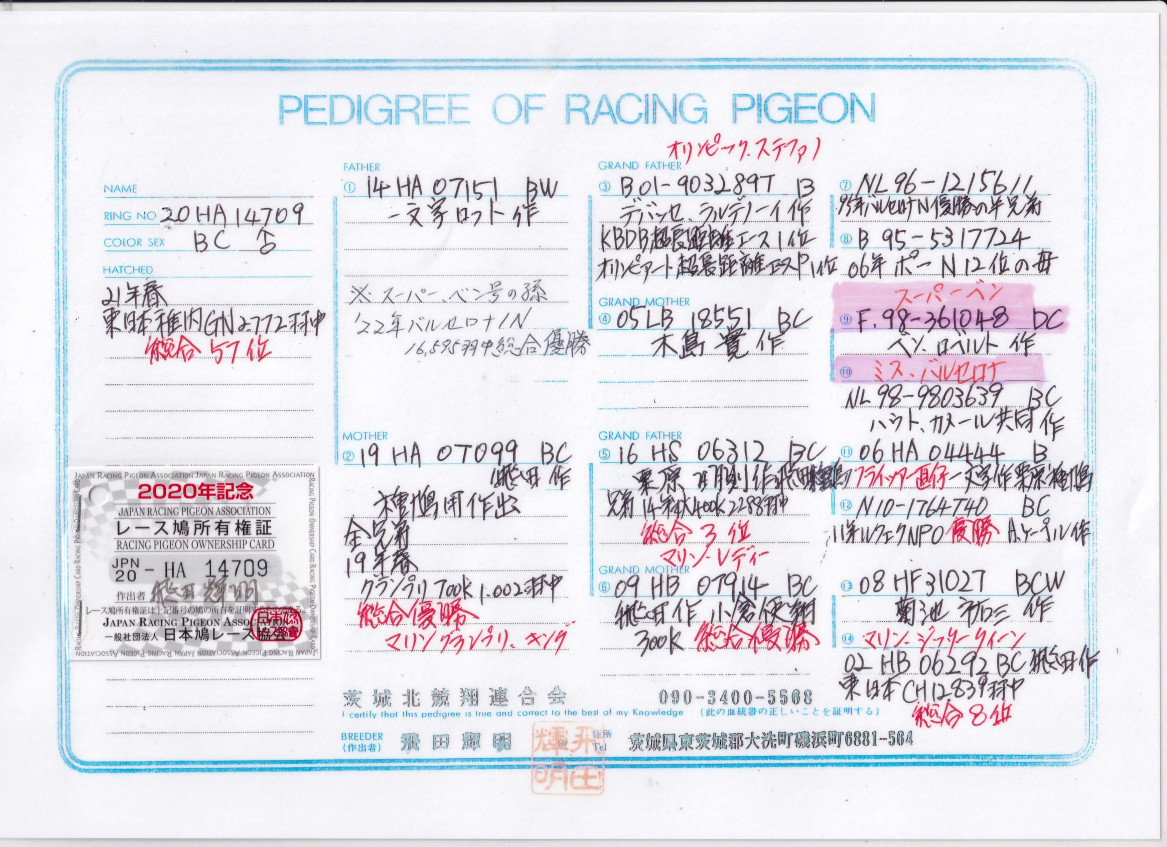 PEDIGREE OF RACING PIGEON
NAME
RING NO 20HA14709
COLOR SEX BC ♂
HATCHED
21年春
東日本稚内GN2772羽中
総合57位
JAPAN RACING PIGEON ASSOCIATION
2020年記念
JAPAN RACING PIGEON ASSOCIATION
レース鳩所有権証
RACING PIGEON OWNERSHIP CARD
JPN
20 - HA 14709
作出者 飛田輝明
レース鳩所有権証は上記番号の鳩の所有を証明
JAPAN RACING PIGEON ASSOCIATION
一般社団法人 日本鳩レース協会
FATHER
① 14 HA 07151 BW
一文字ロフト 作
※ スーパー、ベン号の孫
'22年バルセロナIN
16,595羽中総合優勝
MOTHER
② 19 HA 07099 BC
飛田 作
種鳩用作出
全兄弟
19年春
グランプリ 700K 1.002羽中
総合優勝
マリングランプリ、キング
オリンピック、ステファノ
GRAND FATHER
③ B01-9032897 B
デバッセ、ラルデノーイ 作
KBDB超長距離エース1位
オリンピアート超長距離エースP1位
GRAND MOTHER
④ 05LB 18551 BC
木島 寛 作
GRAND FATHER
⑤ 16 HS 06312 BC
栗原 作 飛田種鳩
兄弟 14年秋400K2288羽中
総合3位
マリン、レディー
GRAND MOTHER
⑥ 09 HB 07914 BC
飛田作 小倉使翔
300K 総合優勝
⑦ NL96-1215611
95年バルセロナN優勝の半兄弟
⑧ B 95-5317724
06年ポーN12位の母
スーパーベン
⑨ F.98-361048 DC
ベン、ロベルト 作
⑩ ミス、バルセロナ
NL98-9803639 BC
ハウト、カメール共同 作
⑪ 06 HA 04444 B
フライッター直仔 一文字作 栗原種鳩
⑫ N10-1764740 BC
11年ルフェックNPO 優勝 A.ケーペル作
⑬ 08 HF31027 BCW
菊池 作
⑭ マリン、シフリークイーン
02 HB 06292 BC 飛田作
東日本CH12.839羽中
総合8位
茨城北競翔連合会 090-3400-5568
I certify that this pedigree is true and correct to the best of my Knowledge (此の血統書の正しいことを証明する)
BREEDER
(作出者) 飛田輝明 住所 Tel 茨城県東茨城郡大洗町磯浜町6881-564
飛田輝明